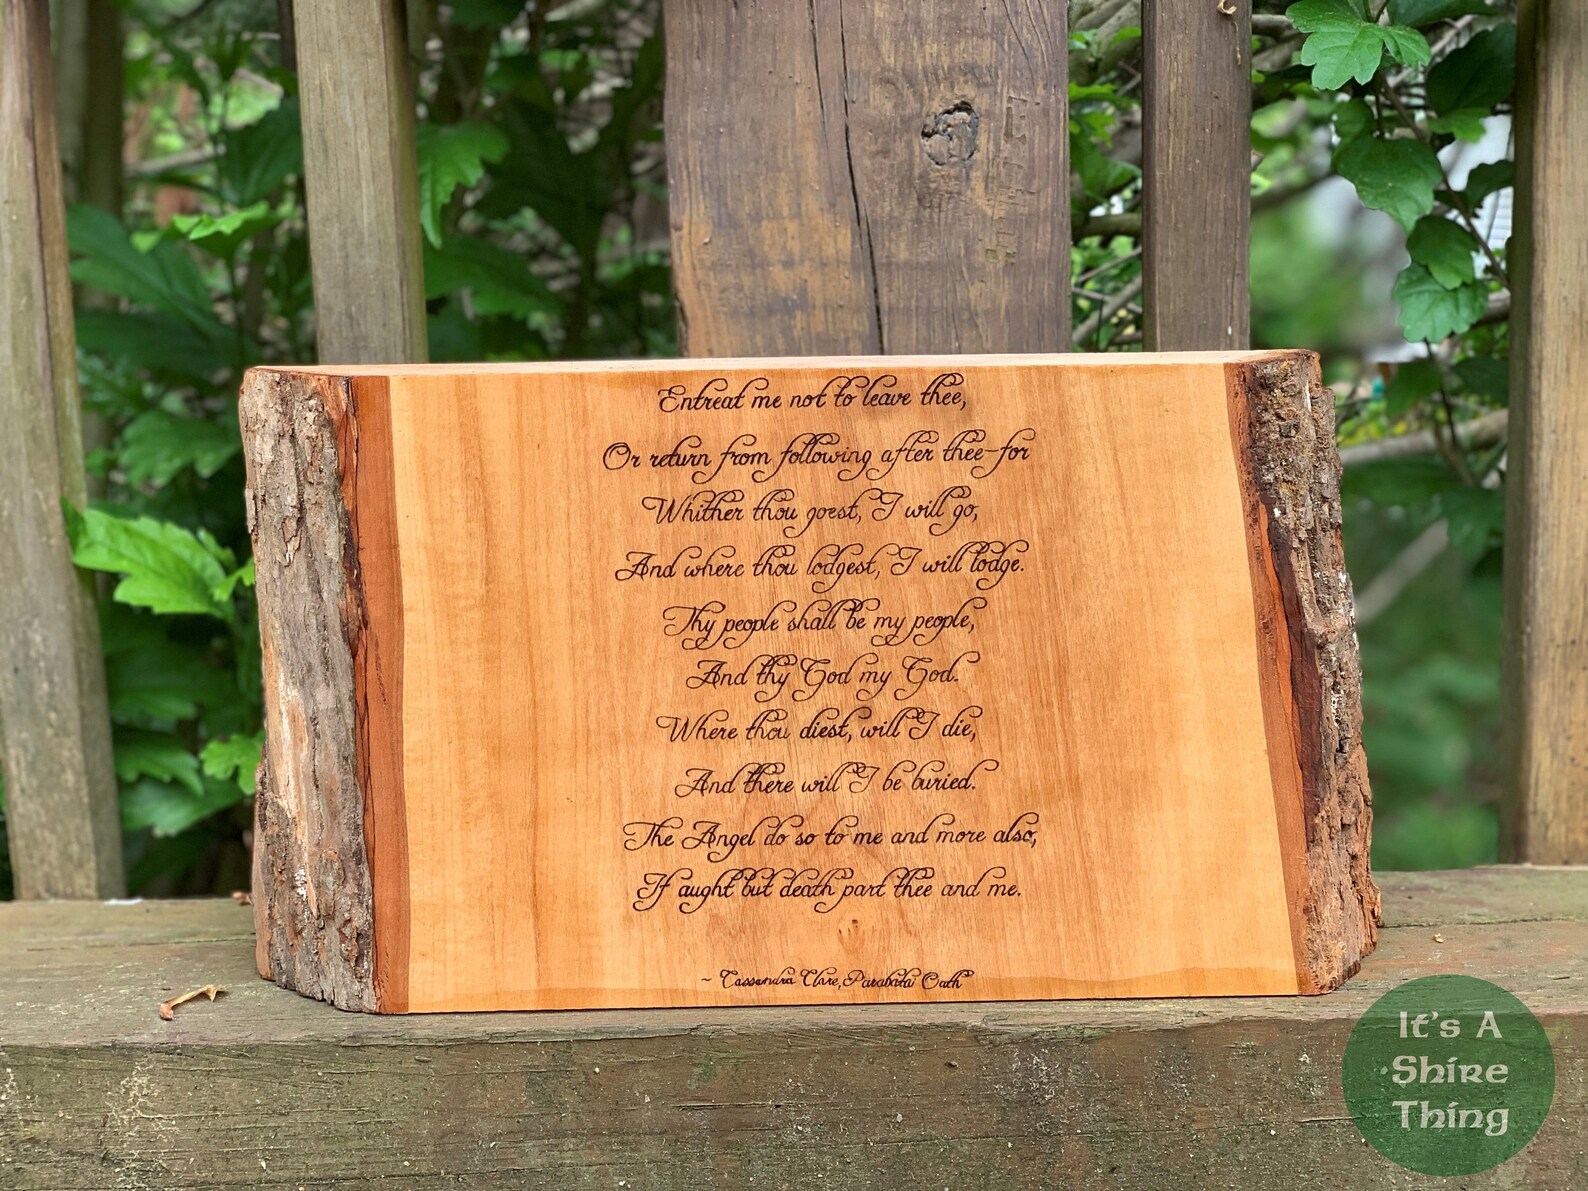 Entreat me not to leave thee,
Or return from following after thee-for
Whither thou goest, I will go,
And where thou lodgest, I will lodge.
Thy people shall be my people,
And thy God my God.
Where thou diest, will I die,
And there will I be buried.
The Angel do so to me and more also,
If aught but death part thee and me.
~ Cassandra Clare, Parabatai Oath
It's A
Shire
Thing